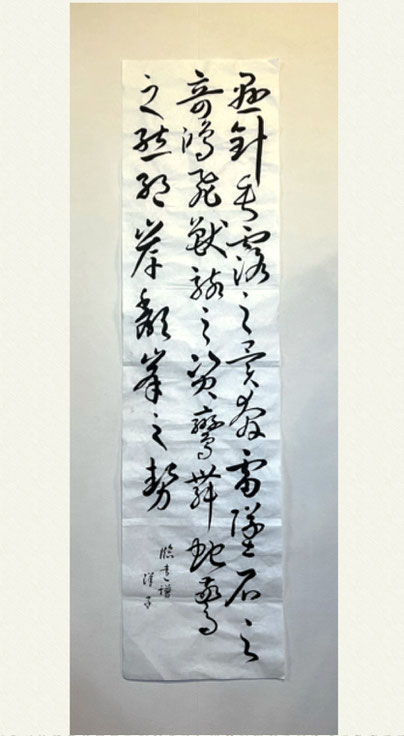 懸針垂露之異奔雷墜石之
奇鴻飛獸駭之資鸞舞蛇驚
之態絶岸頹峯之勢
臨書譜